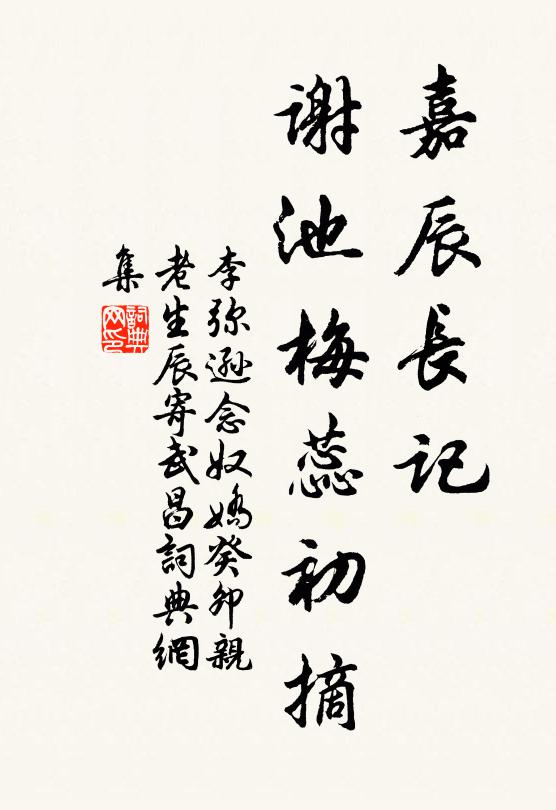 嘉辰長记
谢池梅蕊初摘
李弥遜念奴嬌癸卯親
老生辰寄武昌詞典網
集
詞典
网印